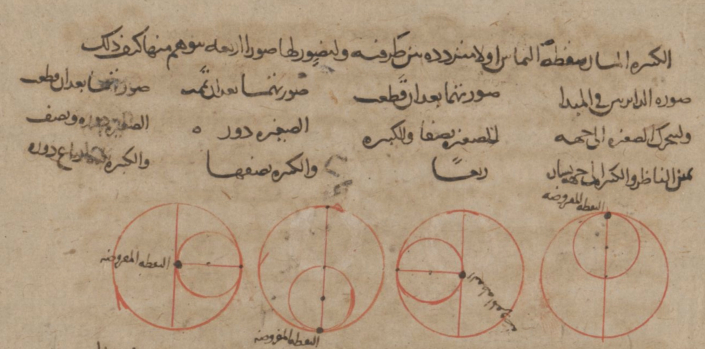 الكبيرة المماس لنقطة التماس اولا مترددة بين طرفيه ولنصور لها صورا اربعة يتوهم منها كيف ذلك
صورة الدائرتين في المبدا
ولتتحرك الصغيرة الى جهة
يمين الناظر والكبيرة الى جهة يساره
صورتهما بعد ان قطعت
الصغيرة نصفا والكبيرة
ربعا
صورتهما بعد ان تمت
الصغيرة دورة
والكبيرة نصفها
صورتهما بعد ان قطعت
الصغيرة دورة ونصف
والكبيرة ارباع دورة
النقطة المفروضة
النقطة المفروضة
النقطة المفروضة
النقطة المفروضة